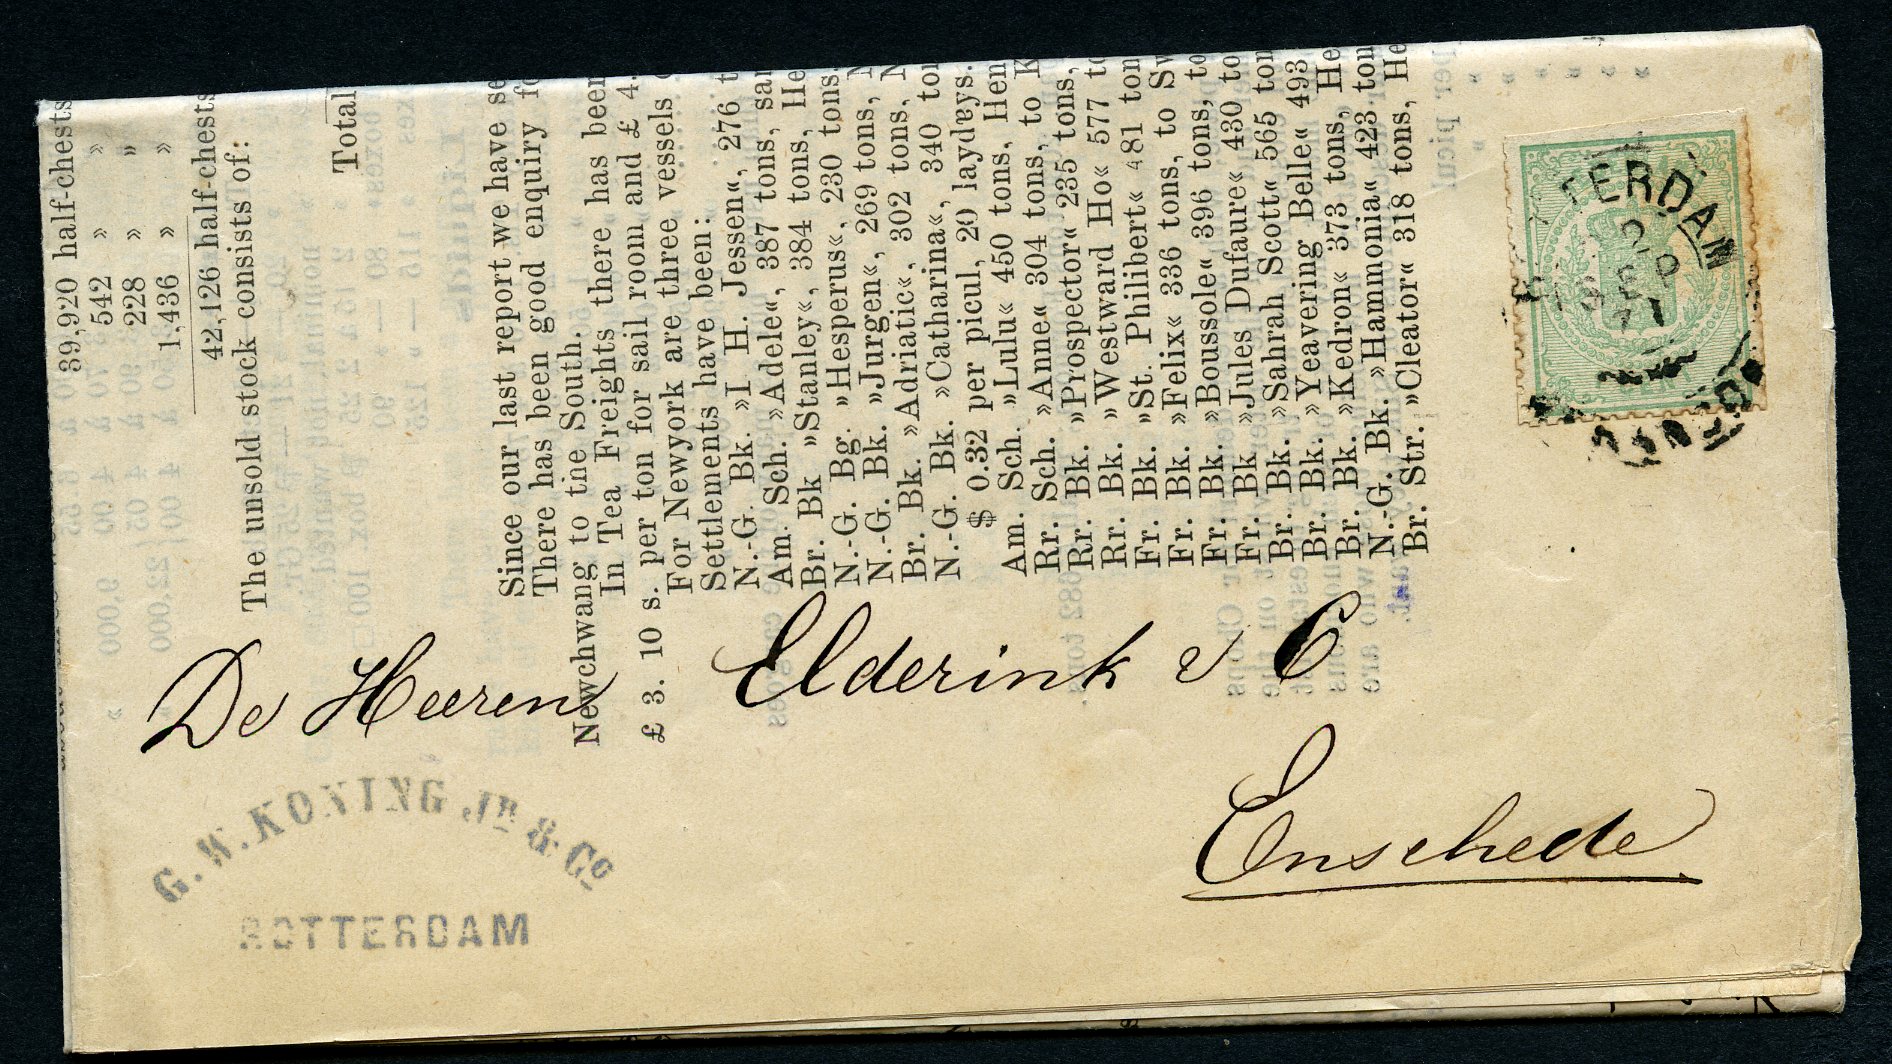 39,920 half-chests
542 »
228 »
1,436 »
42,126 half-chests
The unsold stock consists of:
Total
Since our last report we have se
There has been good enquiry fo
Newchwang to tne South.
In Tea Freights there has been
£ 3. 10 s. per ton for sail room and £ 4.
For Newyork are three vessels
Settlements have been:
N.-G. Bk. »I H. Jessen«, 276 t
Am. Sch. »Adele«, 387 tons, sa
Br. Bk »Stanley«, 384 tons, He
N.-G. Bg. »Hesperus«, 230 tons.
N.-G. Bk. »Jurgen«, 269 tons,
Br. Bk. »Adriatic«, 302 tons.
N.-G. Bk. »Catharina«, 340 ton
$ 0.32 per picul, 20 laydays.
Am. Sch. »Lulu« 450 tons, Hen
Rr. Sch. »Anne« 304 tons, to K
Rr. Bk. »Prospector« 235 tons,
Rr. Bk. »Westward Ho« 577 to
Fr. Bk. »St. Philibert« 481 ton
Fr. Bk. »Felix« 336 tons, to Sw
Fr. Bk. »Boussole« 396 tons, to
Fr. Bk »Jules Dufaure« 430 to
Br. Bk. »Sahrah Scott« 565 ton
Br. Bk. »Yeavering Belle« 493
Br. Bk. »Kedron« 373 tons, He
N.-G. Bk. »Hammonia« 423 ton
Br. Str. »Cleator« 318 tons, He
per picul
TERDAM
De Heeren Elderink & C
Enschede
G. W. KONING JR & Co
ROTTERDAM